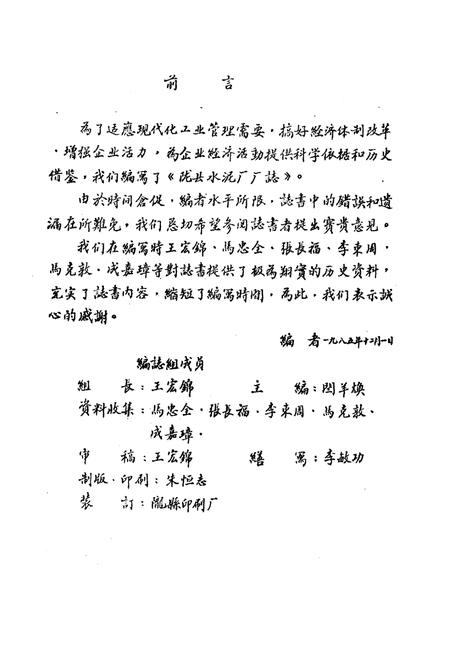 前 言
为了适應现代化工业管理需要，搞好经济体制改革
、增强企业活力，為企业经济活動提供科学依据和历史
借鉴，我们编写了《陇县水泥厂厂誌》。
由於時间倉促，编者水平所限，誌書中的错誤和遗
漏在所難免，我们恳切希望参阅誌書者提出寳贵意见。
我们在编寫時王宏錦、馬忠全、張長福、李東周、
馬克敦、成嘉璋等對誌書提供了极為翔實的历史资料，
充実了誌書内容，縮短了编寫時間，為此，我们表示誠
心的感謝。
编 者 一九八五年十二月一日
编誌組成员
组 長：王宏錦 主 编：閻羊煥
资料收集：馬忠全、張長福、李東周、馬克敦、
成嘉璋.
审 稿：王宏錦 繕 寫：李敏功
制版、印刷：朱恒志
装 訂：隴縣印刷厂